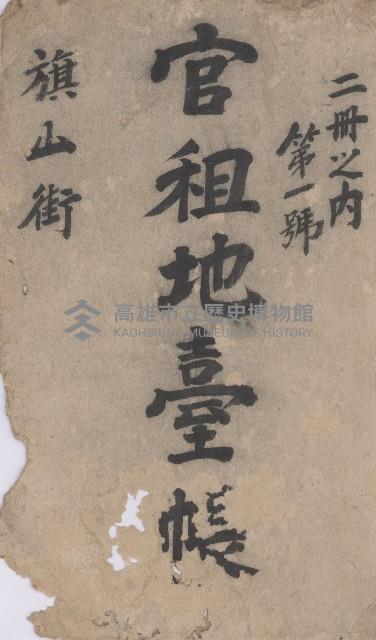 二冊之内
第一號
官租地臺帳
旗山街
高雄市立歷史博物館
KAOHSIUNG MUSEUM OF HISTORY